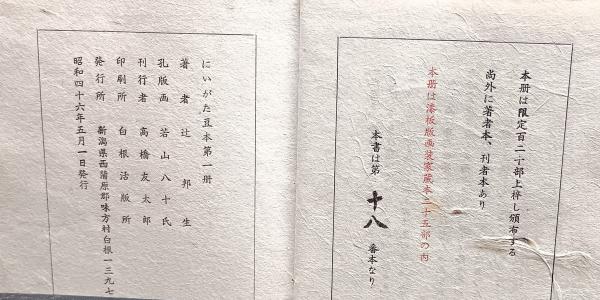 本冊は限定百二十部上梓し頒布する
尚外に著者本、刊者本あり
本冊は漆板版画装家蔵本二十五部の内
本書は第 十八 番本なり
にいがた豆本第一冊
著者 辻邦生
孔版画 若山八十氏
刊行者 高橋友太郎
印刷所 白根活版所
発行所 新潟県西蒲原郡味方村白根一三九七
昭和四十六年五月一日発行